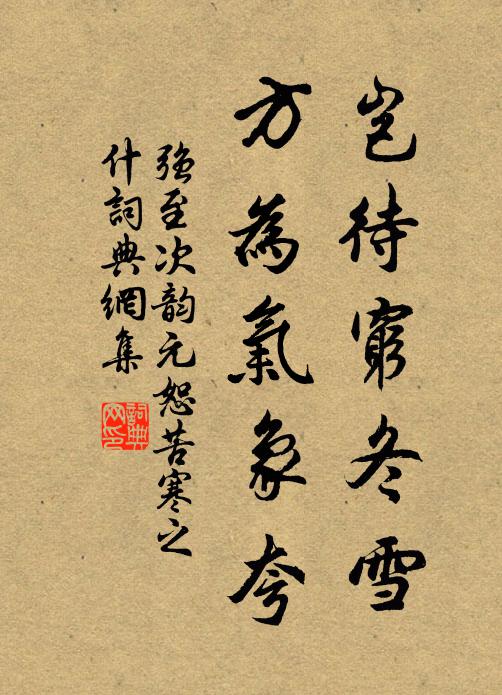 豈待窮冬雪
方為氣象夸
強至次韵元恕苦寒之
什詞典網集
詞典
网印